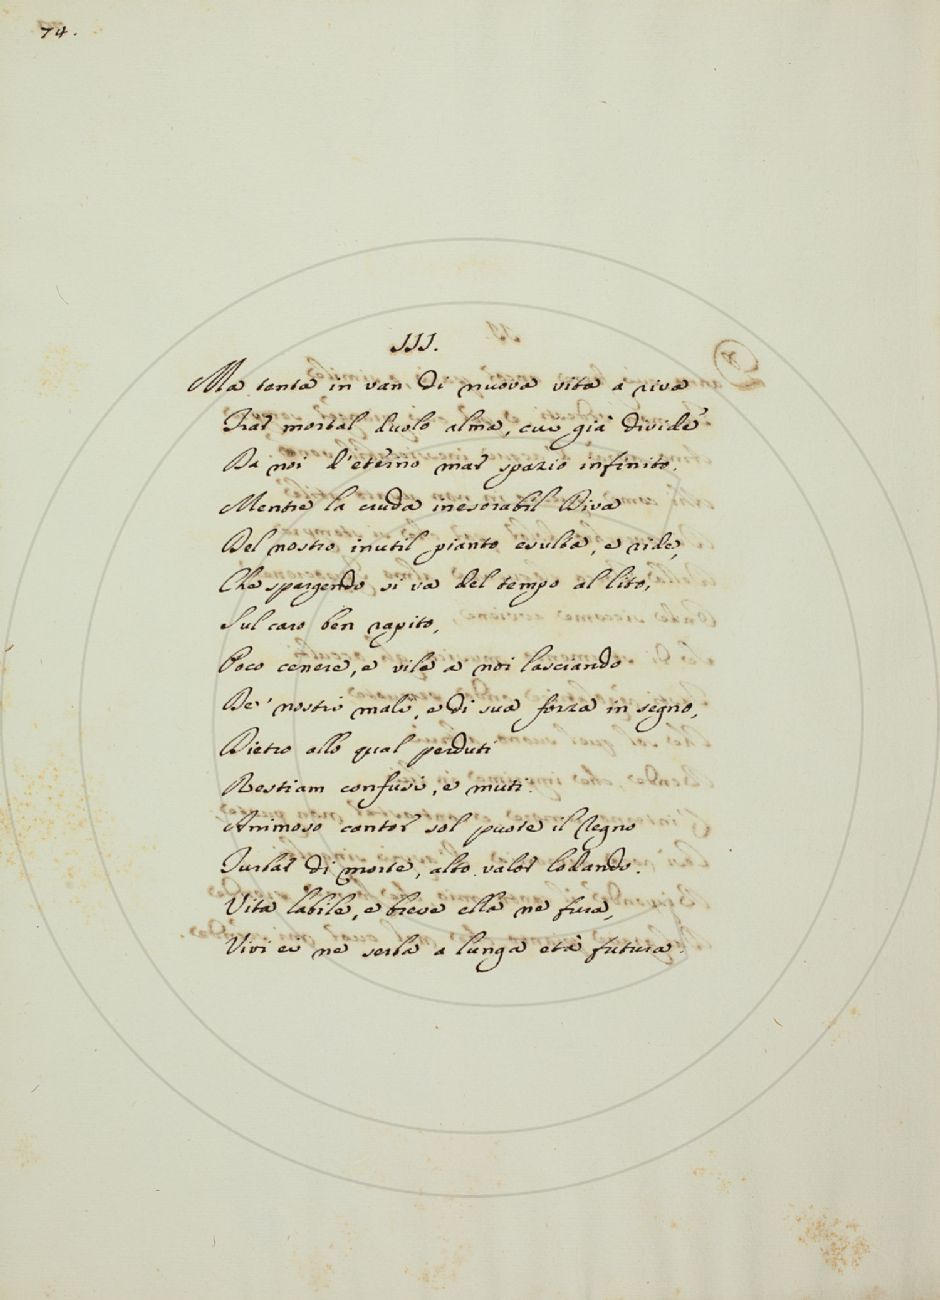 74.
III.
Ma tenta in van di nuova vita a riva
Trar mortal duolo alma, cui già divide
Da noi d'eterno mar spazio infinito.
Mentre la cruda inesorabil Diva
Del nostro inutil pianto esulta, e ride,
Che spargendo si va del tempo al lito,
Sul caro ben rapito,
Poco cenere, e vile a noi lasciando
De' nostri mali, e di sua forza in segno,
Dietro allo qual perduti
Restiam confusi, e muti.
Animoso cantor sol puote il Regno
Turbar di morte, alto valor lodando.
Vita labile, e breve ella ne fura,
Vivi ei ne serba a lunga età futura.